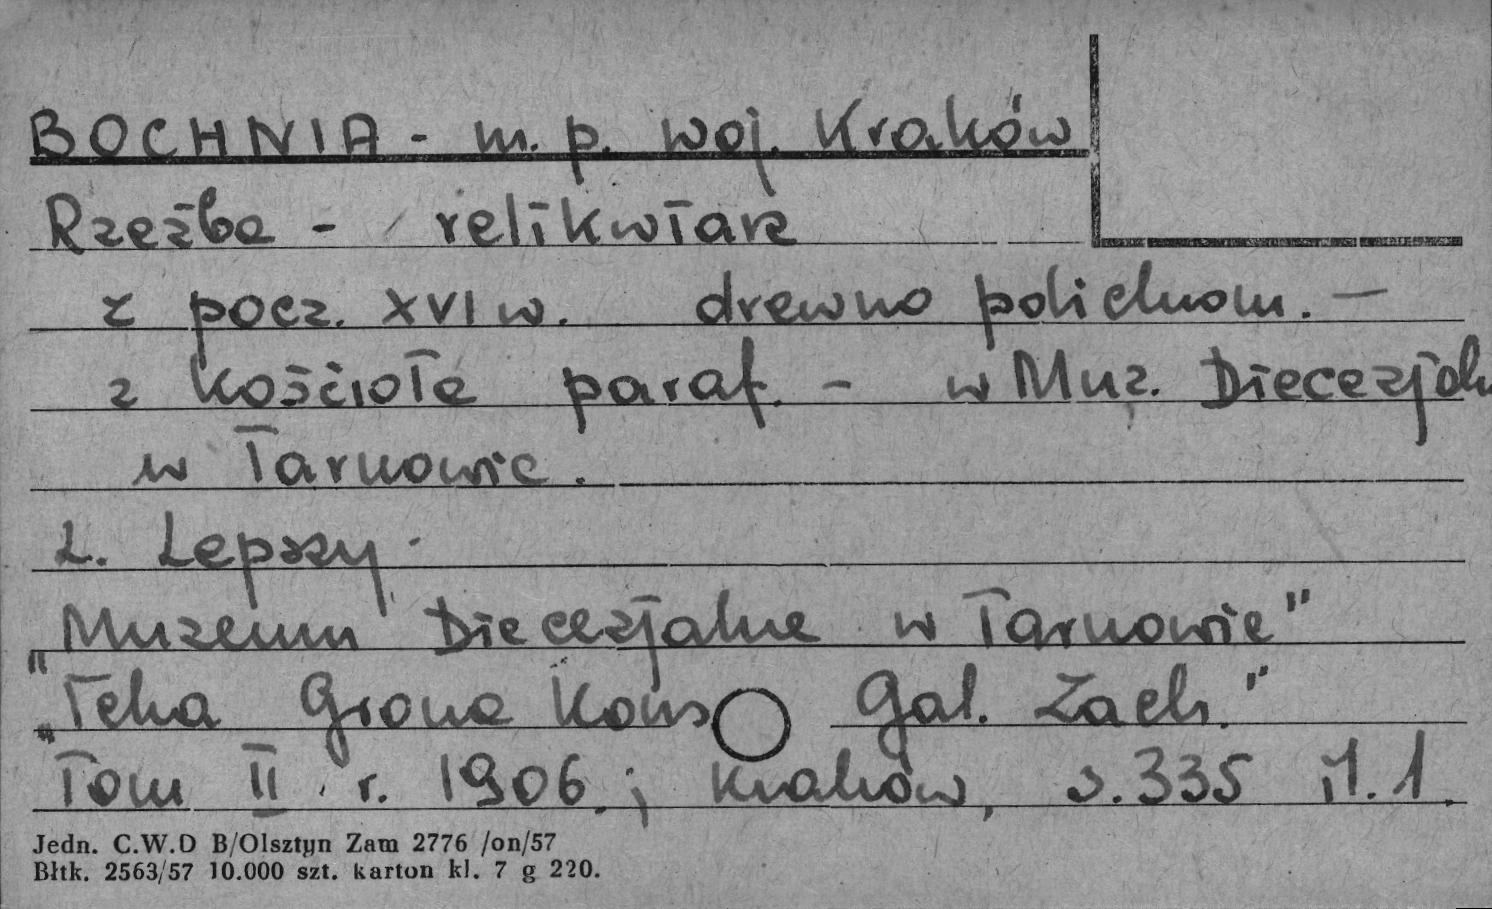 BOCHNIA - m. p. woj. Kraków
Rzeźba - relikwiarz
z pocz. XVI w. drewno polichrom. —
z kościoła paraf. - w Muz. Diecezjaln
w Tarnowie.
L. Lepszy.
„Muzeum Diecezjalne w Tarnowie"
„Teka Grona Kons Gal. Zach."
Tom II r. 1906.; Kraków, s. 335 il. 1.
Jedn. C.W.D B/Olsztyn Zam 2776 /on/57
Błtk. 2563/57 10.000 szt. karton kl. 7 g 220.